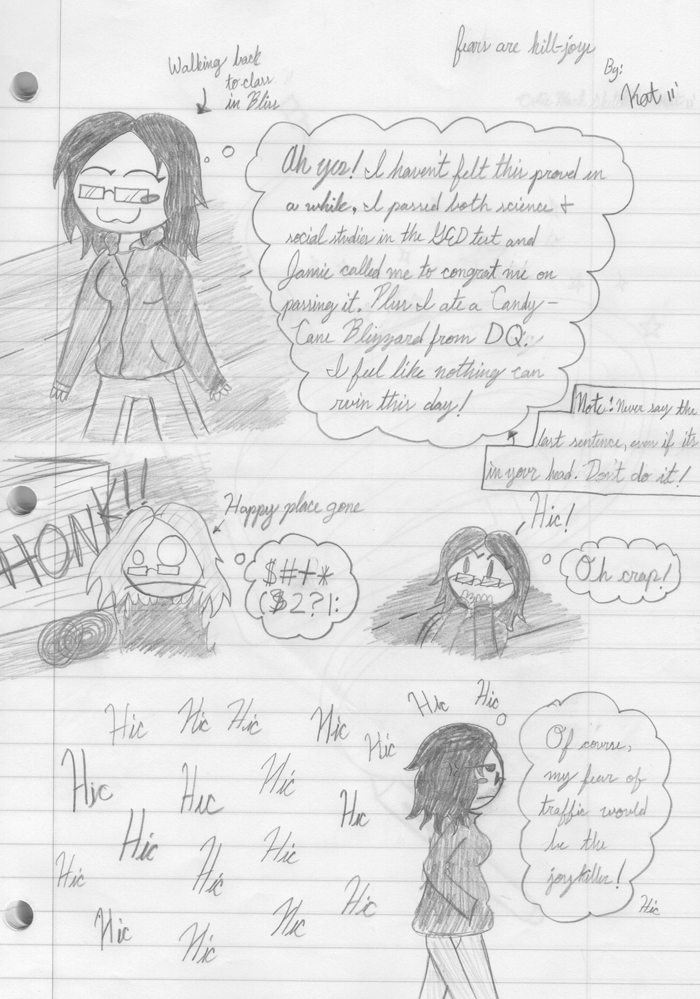 fears are kill-joys
By:
Kat
Walking back
to class
in Bliss
Ah yes! I haven't felt this proud in
a while. I passed both science +
social studies in the GED test and
Jamie called me to congrat me on
passing it. Plus I ate a Candy-
Cane Blizzard from DQ.
I feel like nothing can
ruin this day!
Note: Never say the
last sentence, even if it's
in your head. Don't do it!
HONK!!
Happy place gone
$#+*
($2?!:
Hic!
Oh crap!
Hic Hic Hic Hic Hic
Hic Hic Hic Hic
Hic Hic Hic
Hic Hic
Hic Hic Hic
Hic Hic
Of course,
my fear of
traffic would
be the
joykiller!
Hic